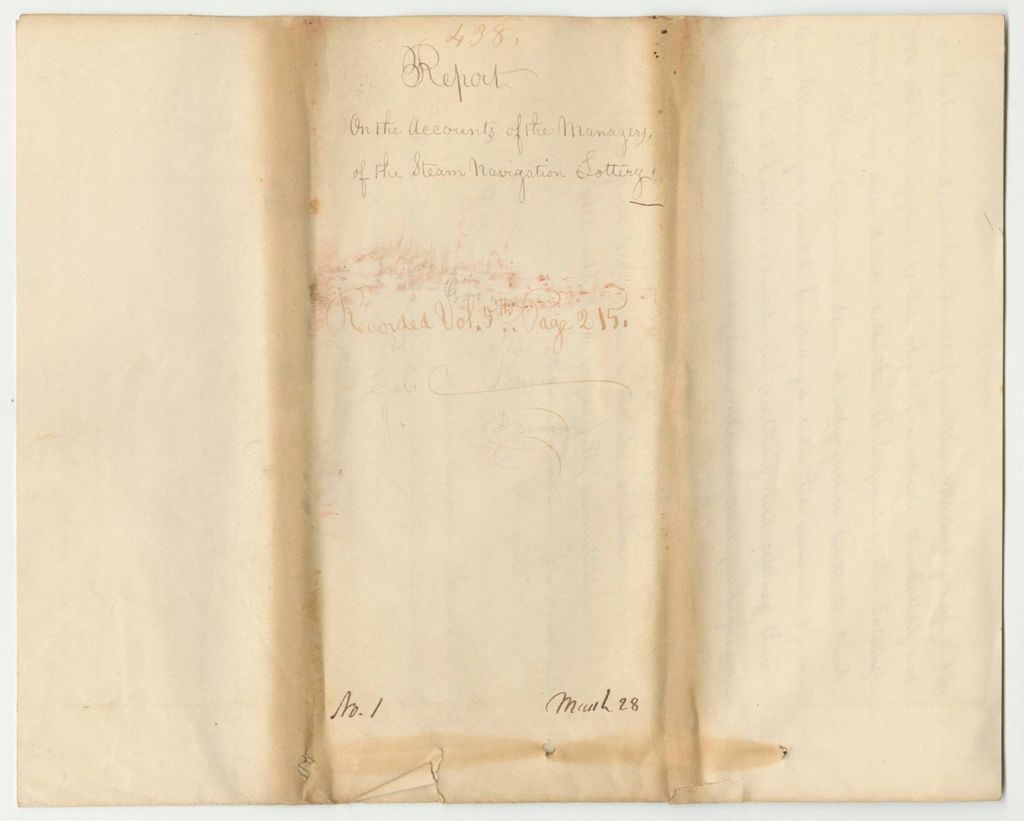 438.
Report
On the Accounts of the Managers,
of the Steam Navigation Lottery.
Recorded Vol. 5th. Page 215.
No. 1
March 28